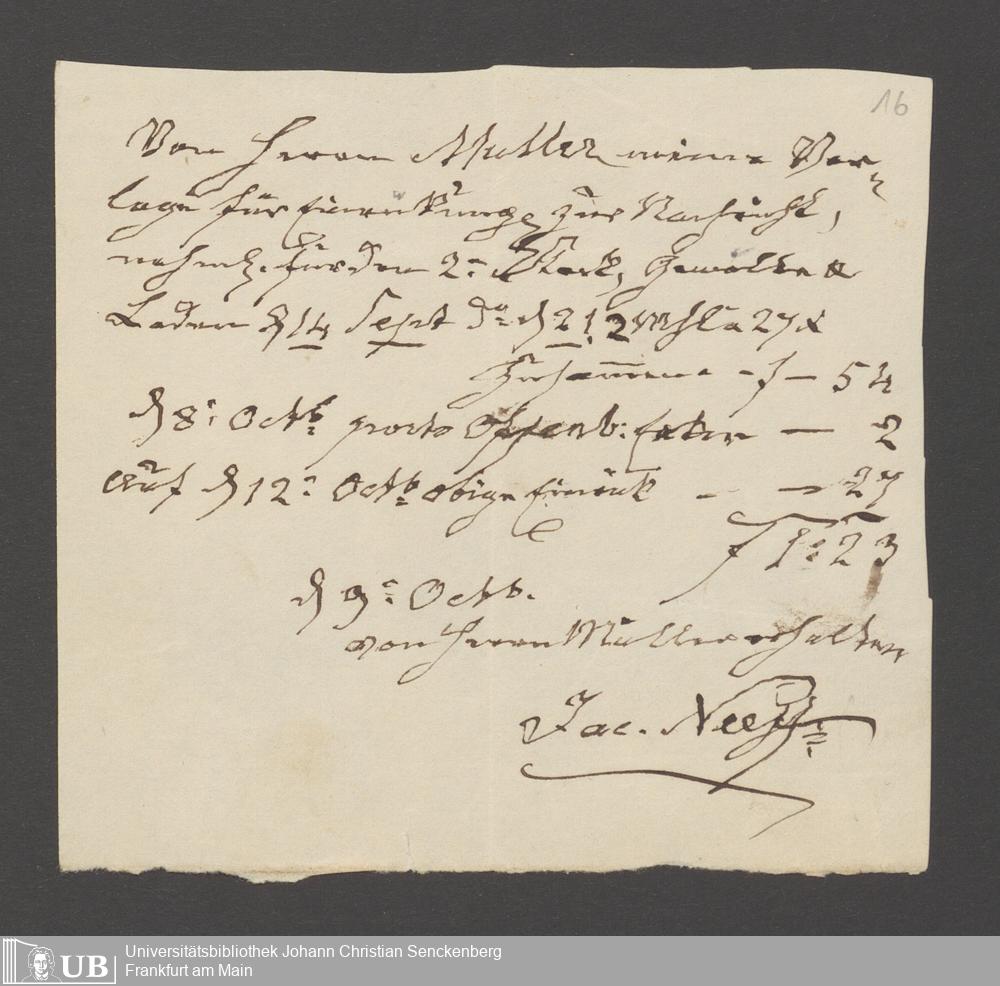 16
Von Herrn Muller meine Ver=
lage für Einrükung zur Nachricht,
nehml. für den 2n Stock, Gewölbe &
Laden d 14 Sept do d 21 2 Mahl a 27 x
Zusammen - f — 54
d 8: Octb: porto Offenb: — 2
auf d 12: Octb obige Einrük - — 27
f 1: 23
d 9: Octb.
von Herrn Muller erhalten
Jac.
UB
Universitätsbibliothek Johann Christian Senckenberg
Frankfurt am Main